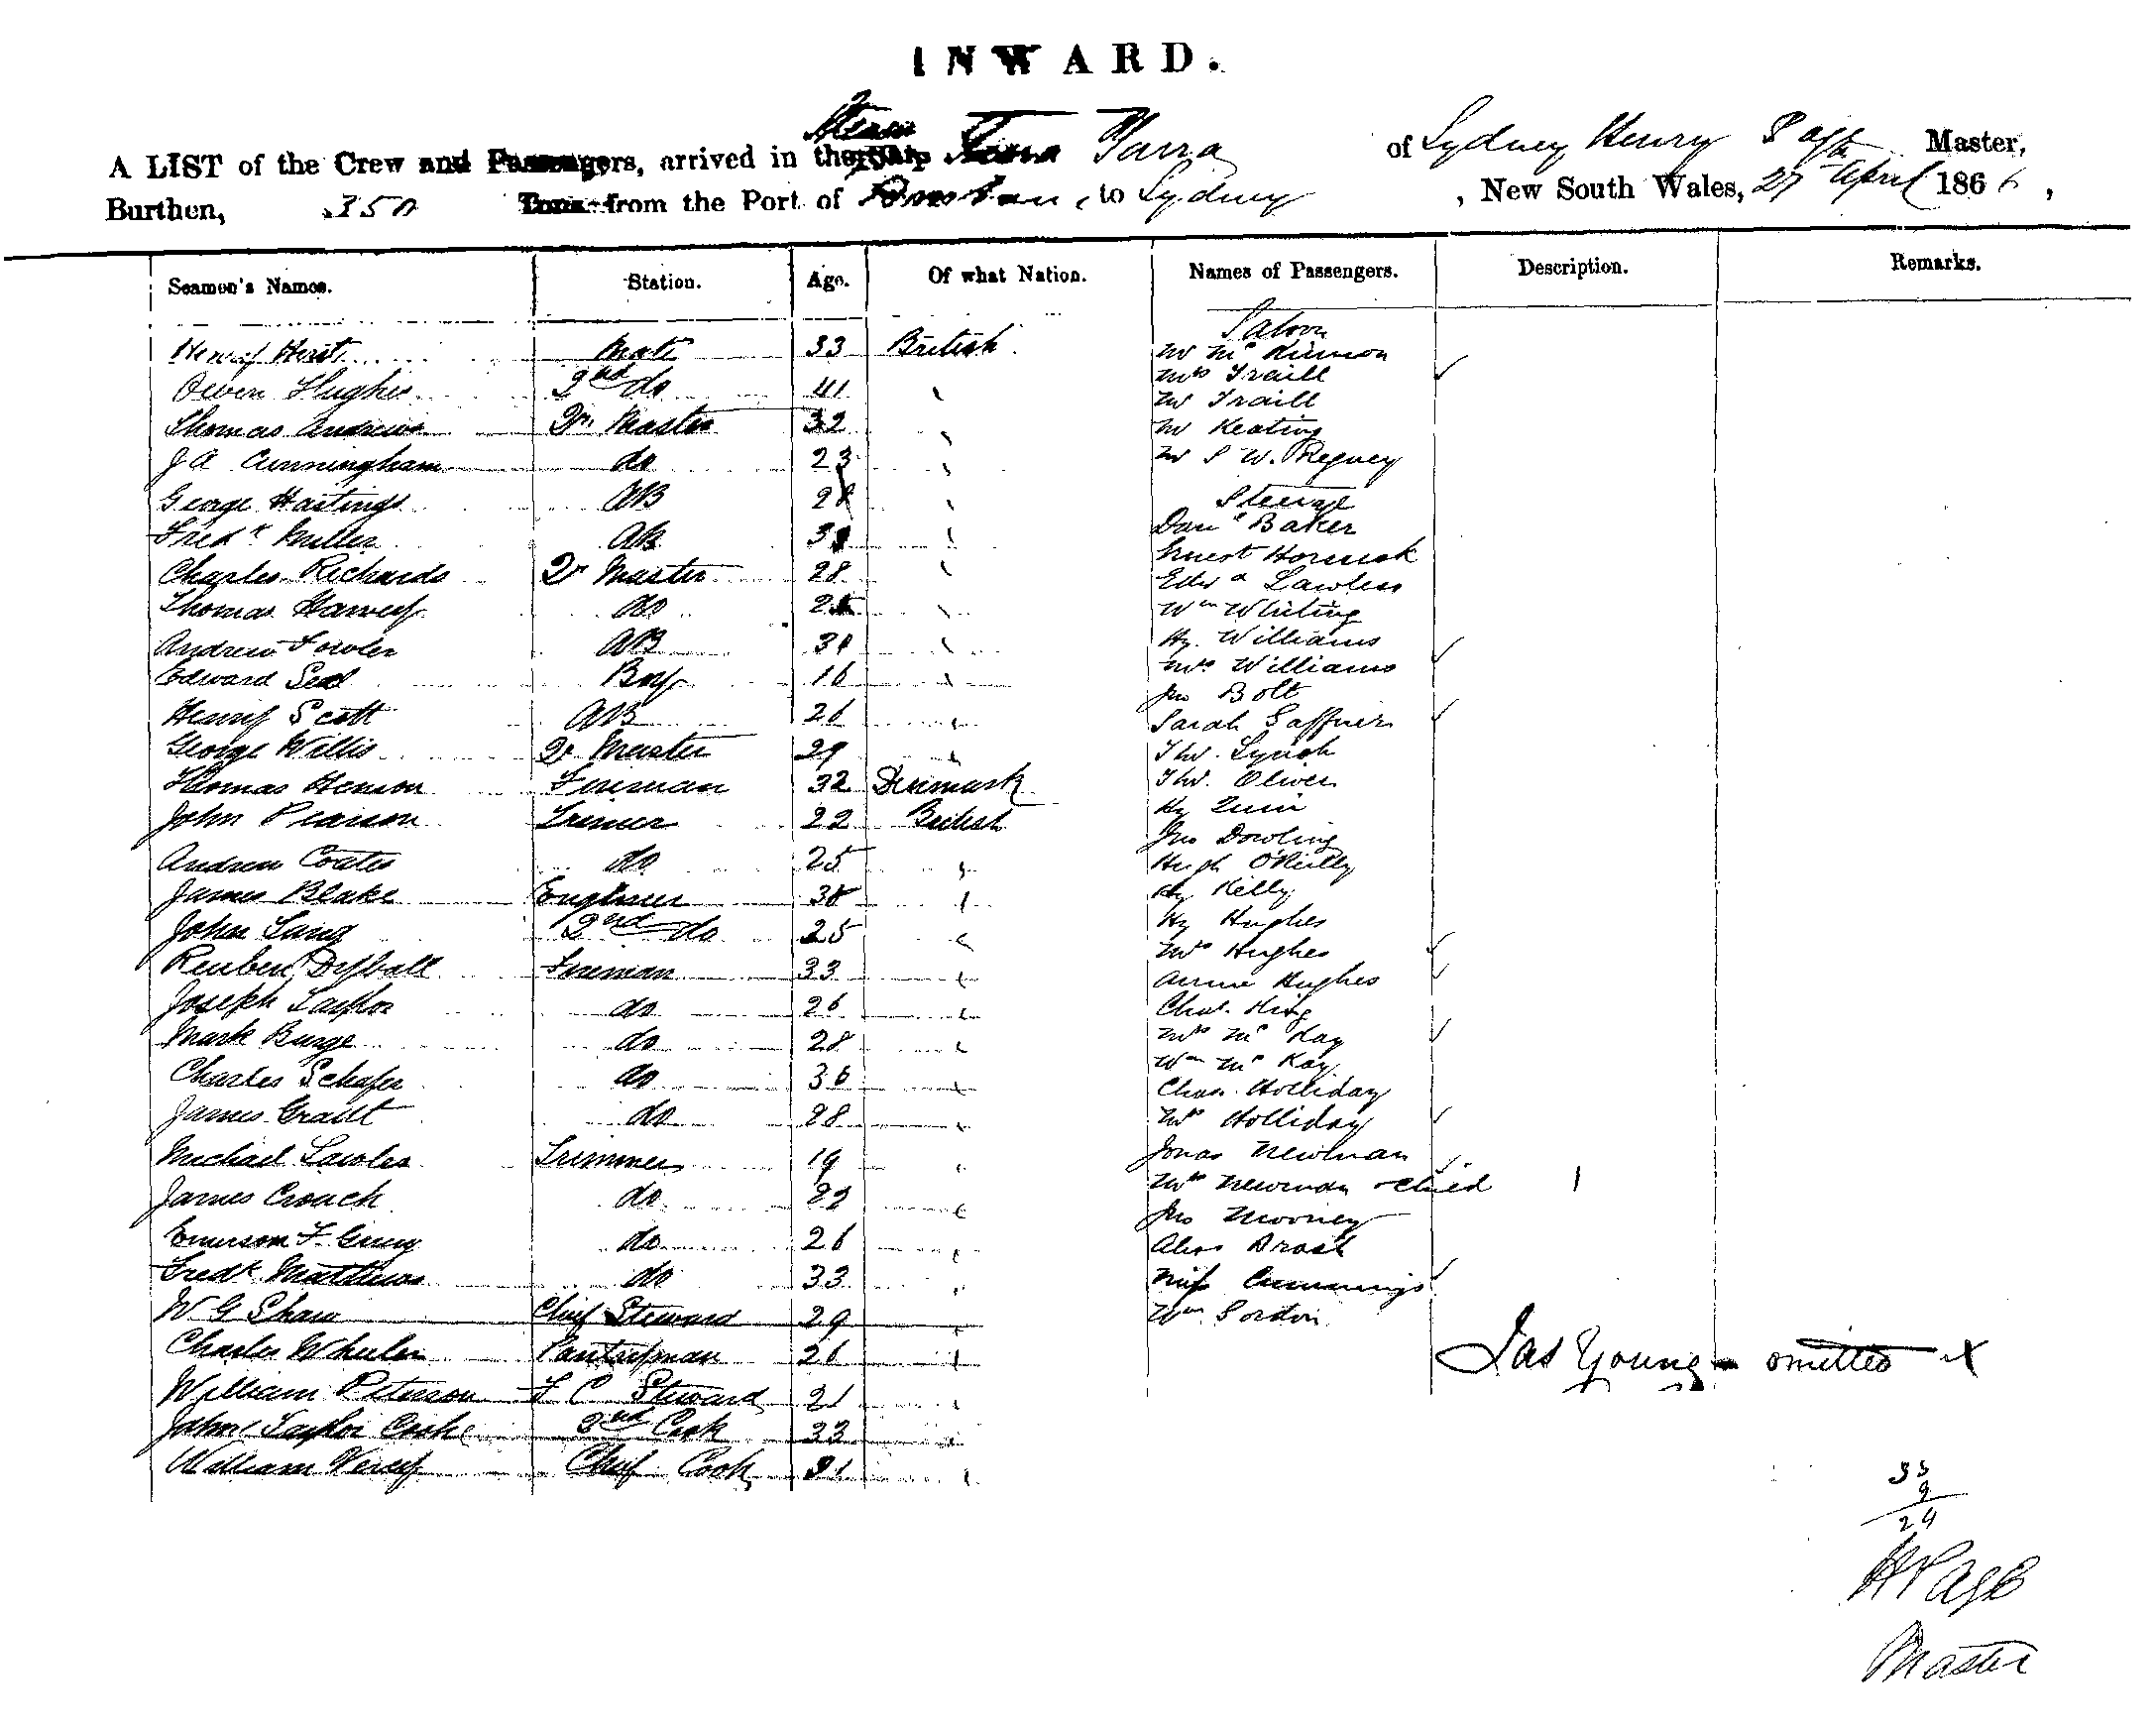 INWARD.
A LIST of the Crew and Passengers, arrived in the Ship Steam Yarra Yarra of Sydney Henry Page Master,
Burthen, 350 Tons from the Port of to Sydney, New South Wales, 27 April 1866,
Seamen's Names. Station. Age. Of what Nation. Names of Passengers. Description. Remarks.
Henry Hirst Mate 33 British
Owen Hughes 2nd do 41 "
Thomas Andrews Qr. Master 32 "
J A Cunningham do 23 "
George Hastings AB 28 "
Fredk Miller AB "
Charles Richards Qr Master 28 "
Thomas Harvey do "
Andrew Fowler AB 31 "
Edward Seal Boy 16 "
Henry Scott AB 26 "
George Willis Qr Master 29 "
Thomas Henson Fireman 32 Denmark
John Pearson Trimer 22 British
Andrew Coates do 25 "
James Blake Engineer 38 "
John Lang 2nd do 25 "
Reuben Dyball Fireman 33 "
Joseph Taylor do 26 "
Mark Burge do 28 "
Charles Schafer do 36 "
James Grant do 28 "
Michael Lawles Trimmer 19 "
James Crouch do 22 "
Emerson F. do 26 "
Fredk Matthews do 33 "
W G Shaw Chief Steward 29 "
Charles Wheeler Pantryman 26 "
William Peterson F C Steward 21 "
John Taylor 2nd Cook 33 "
William Verey Chief Cook 31 "
Saloon
Mr McKinnon
Mrs Traill
Mr Traill
Mr Keating
Mr S W. Regney
Steerage
Danl Baker
Ernest
Edwd Lawless
Wm Whiting
Hy. Williams
Mrs Williams
Jno Bolt
Sarah Gaffney
Thos. Lynch
Thos. Oliver
Hy Quin
Jno Dowling
Hugh O'Reilly
Hy Kelly
Hy Hughes
Mrs Hughes
Annie Hughes
Chas. King
Mrs McKay
Wm McKay
Chas. Holliday
Mrs Holliday
Jonas Newman
Mrs Newman & child 1
Jno Mooney
Alexr
Miss Cummings
Wm Gordon
Jas Young omitted X
33
9
24
H Page
Master